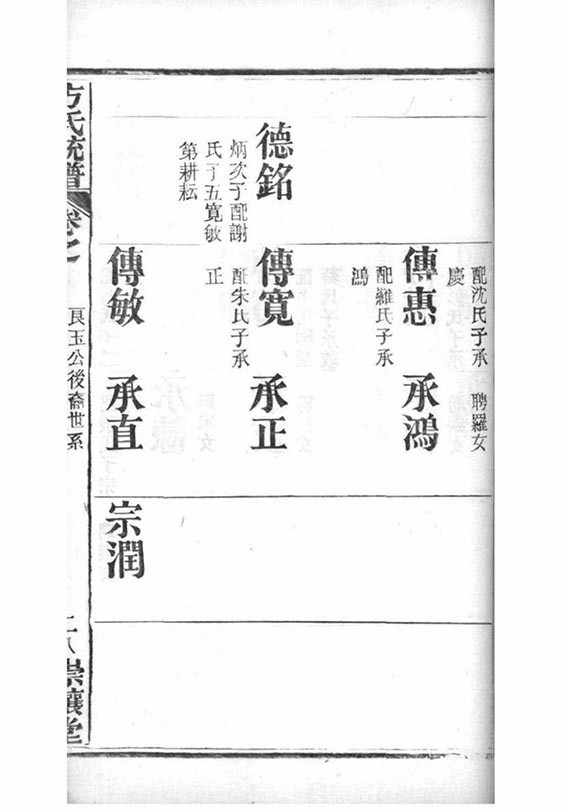 配沈氏子承
慶
聘羅女
傳惠
承鴻
配羅氏子承
鴻
德銘
炳次子配謝
氏子五寬敏
第耕耘
傳寬
承正
配朱氏子承
正
傳敏
承直
宗潤
方氏統譜
卷之
良玉公後裔世系
二八
堂